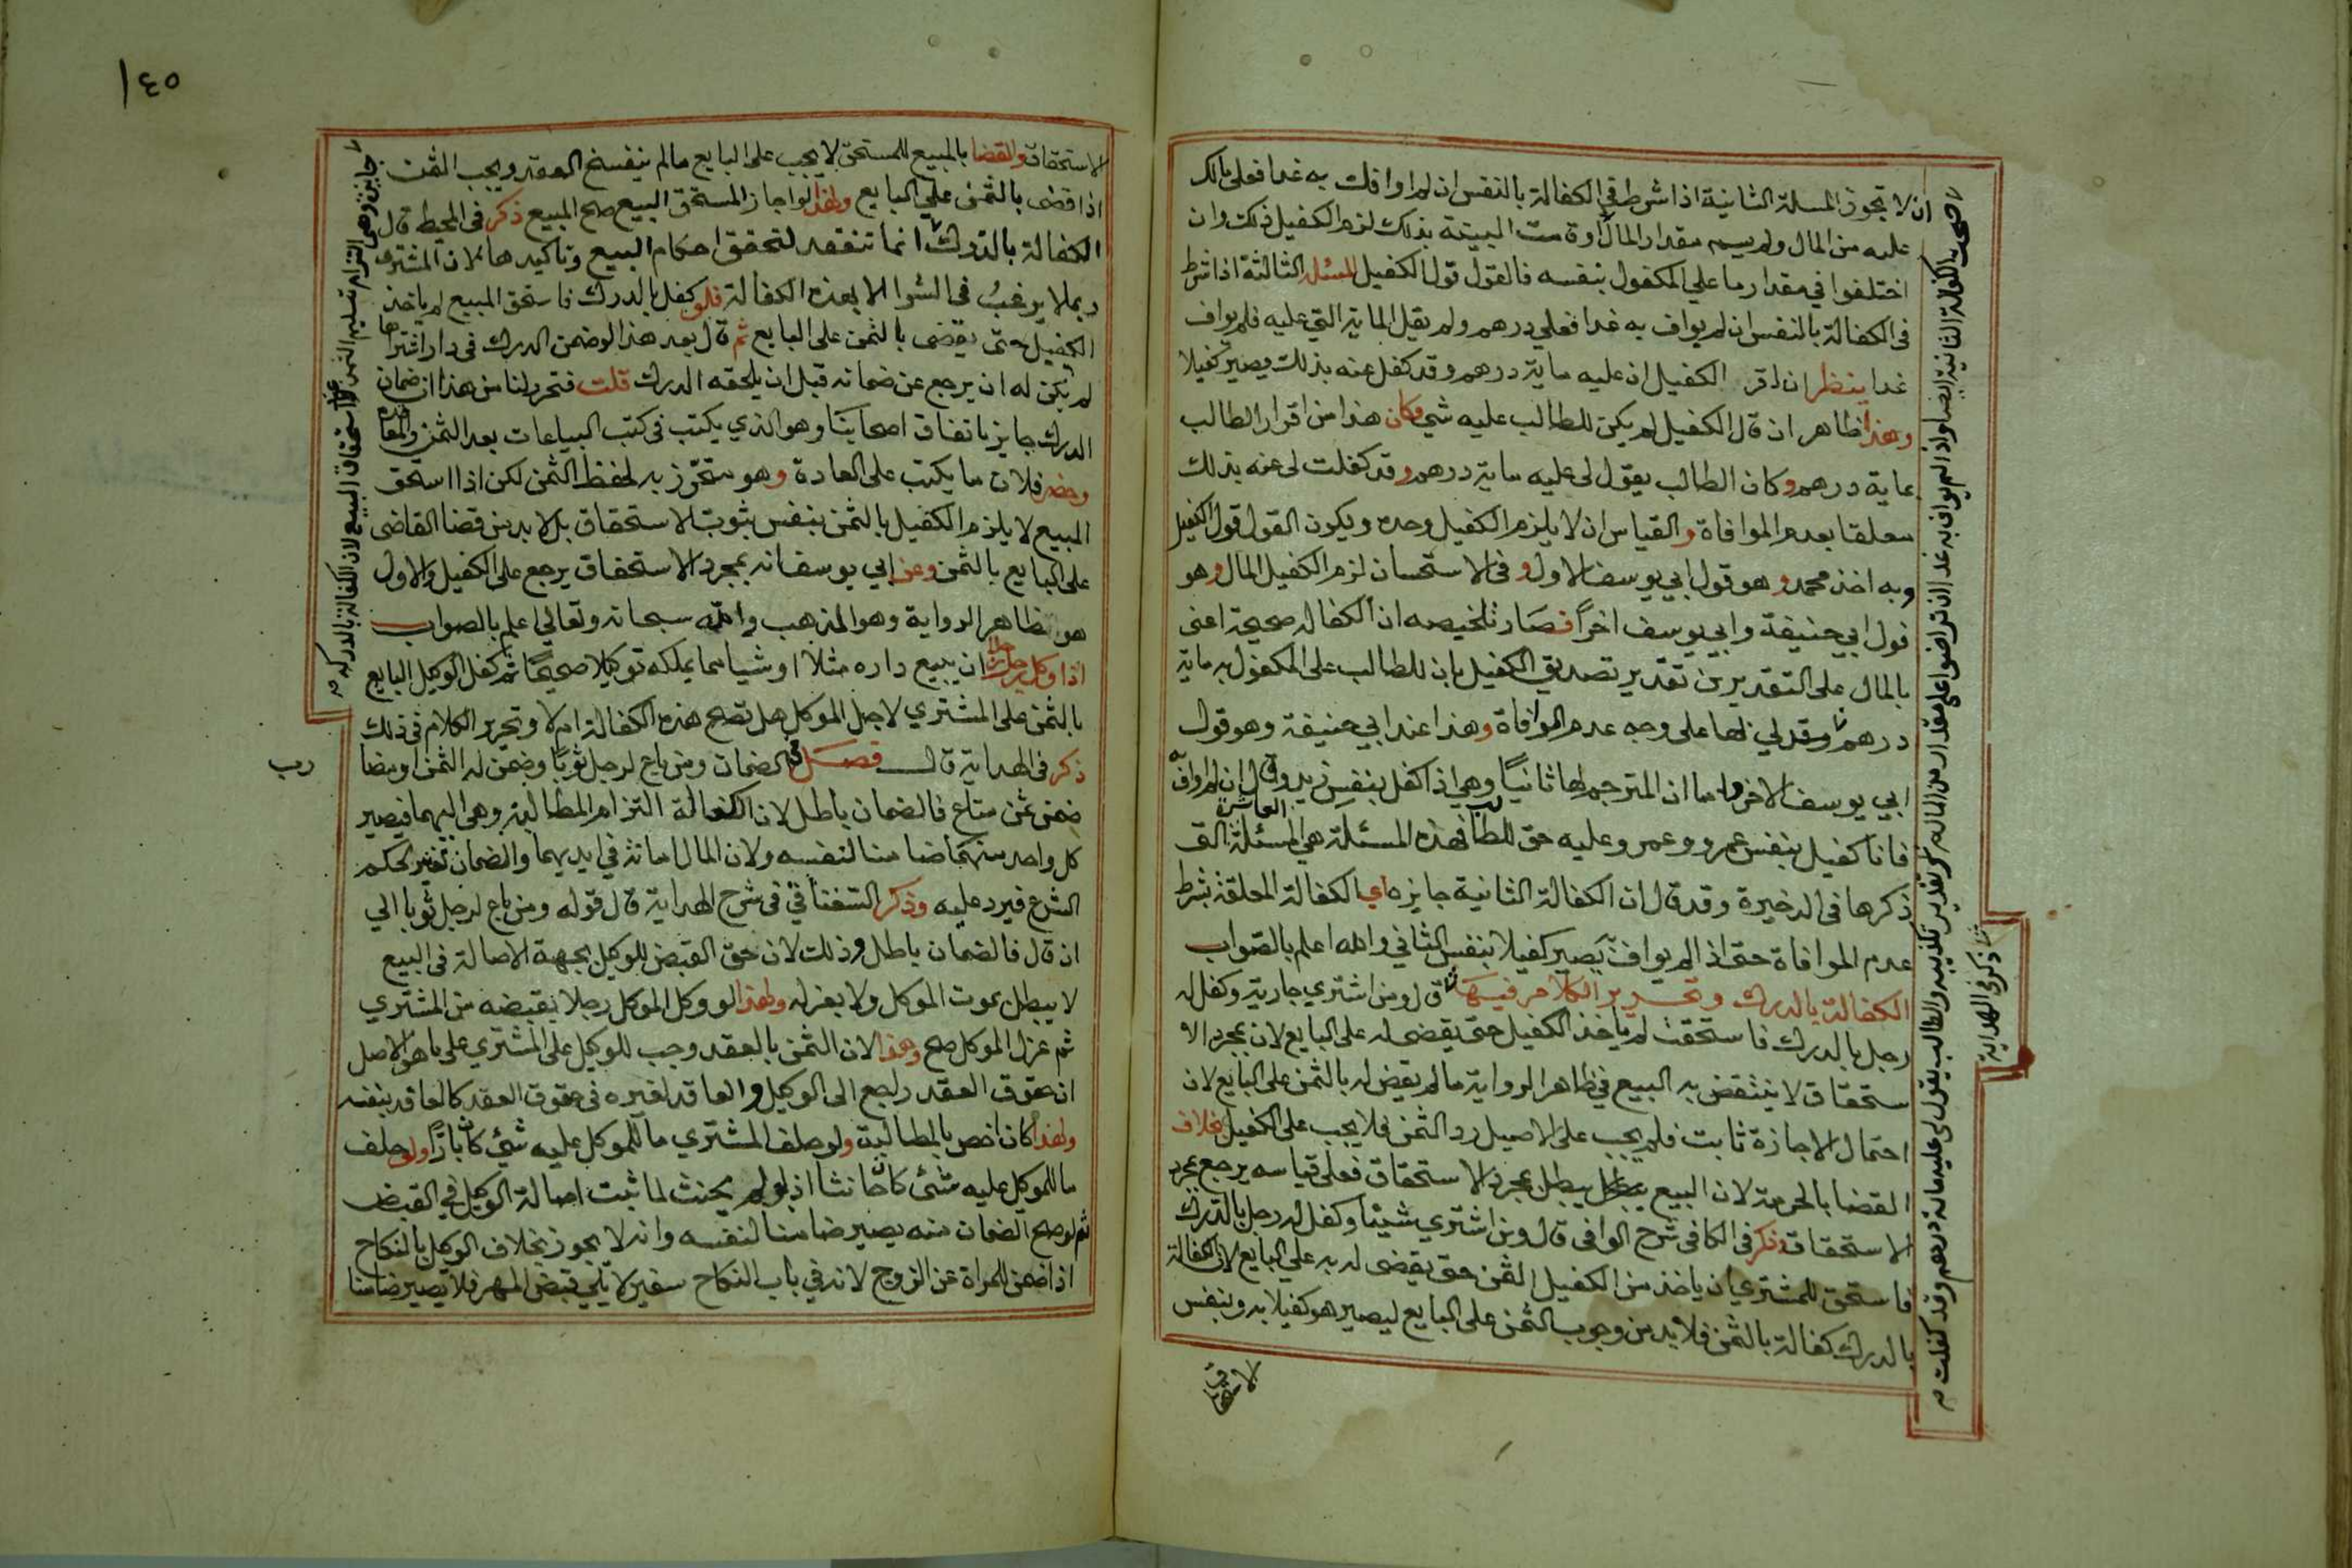 ان لا تجوز المسلة الثانية اذا شرط في الكفالة بالنفس ان لم اوافك به غدا فعلي مالك
عليه من المال ولم يسم مقدار المال وقامت البينة بذلك لزم الكفيل ذلك وان
اختلفوا في مقدار ما علي المكفول بنفسه فالقول قول الكفيل المسئلة الثالثة اذا شرط
في الكفالة بالنفس ان لم يواف به غدا فعلي درهم ولم يقل الماية التي عليه فلم يواف
غدا ينظر ان اقر الكفيل ان عليه ماية درهم وقد كفل عنه بذلك يصير كفيلا
وهذا ظاهر ان قال الكفيل لم يكن للطالب عليه شي وكان هذا من اقرار الطالب
بماية درهم وكان الطالب يقول لي عليه ماية درهم وقد كفلت لي عنه بذلك
معلقا بعدم الموافاة والقياس ان لا يلزم الكفيل وحده ويكون القول قول الكفيل
وبه اخذ محمد وهو قول ابي يوسف الاول وفي الاستحسان لزم الكفيل المال وهو
قول ابي حنيفة وابي يوسف اخرا فصار تلخيصه ان الكفالة صحيحة اعني
بالمال على التقديرين تقدير تصديق الكفيل بان للطالب على المكفول به ماية
درهم على وجه عدم الموافاة وهذا عند ابي حنيفة وهو قول
ابي يوسف الاخر واما المترجم لها ثانيا وهي اذا كفل بنفس زيد وقال ان لم اواف به
فانا كفيل بنفس عمرو وعمرو عليه حق للطالب فهذه المسئلة هي المسئلة العاشرة التي
ذكرها في الذخيرة وقد قال ان الكفالة الثانية جايزة اي الكفالة المعلقة بشرط
عدم الموافاة حتى اذا لم يواف يصير كفيلا بنفس الثاني والله اعلم بالصواب
الكفالة بالدرك وتحرير الكلام فيها قال ومن اشتري جارية وكفل له
رجل بالدرك فاستحقت لم ياخذ الكفيل حتى يقضى له على البايع لان بمجرد الا
ستحقاق لا ينتقض به البيع في ظاهر الرواية ما لم يقض له بالثمن على البايع لان
احتمال الاجازة ثابت فلم يجب على الاصيل رد الثمن فلا يجب على الكفيل بخلاف
القضا بالحرية لان البيع يبطل بمجرد الاستحقاق فعلى قياسه يرجع بمجرد
الاستحقاق وذكر في الكافي شرح الوافي قال ومن اشتري شيئا وكفل له رجل بالدرك
فاستحق للمشتري ان ياخذ من الكفيل الثمن حتى يقضى له به علي البايع لان الكفالة
بالدرك كفالة بالثمن فلا بد من وجوب الثمن على البايع ليصير هو كفيلا به وبنفس
الاستحقاق
ذكر في الهداية
١٤٥
الاستحقاق والقضا بالمبيع للمستحق لا يجب على البايع ما لم ينفسخ العقد ويجب الثمن
اذا قضى بالثمن علي البايع ولهذا لو اجاز المستحق البيع صح المبيع ذكر في المحيط قال
الكفالة بالدرك انما تنعقد لتحقق احكام البيع وتاكيدها لان المشتري
ربما لا يرغب في الشرا الا بهذه الكفالة فلو كفل بالدرك فاستحق المبيع لم ياخذ
الكفيل حتى يقضى بالثمن على البايع ثم قال بعد هذا لو ضمن الدرك في دار اشتراها
لم يكن له ان يرجع عن ضمانه قبل ان يلحقه الدرك قلت فتحرر لنا من هذا ان ضمان
الدرك جايز باتفاق اصحابنا وهو الذي يكتب في كتب البياعات بعد الثمن
وضمن فلان ما يكتب على العادة وهو متحرز به لحفظ الثمن لكن اذا استحق
المبيع لا يلزم الكفيل بالثمن بنفس ثبوت الاستحقاق بل لا بد من قضا القاضى
على البايع بالثمن وعن ابي يوسف انه بمجرد الاستحقاق يرجع على الكفيل والاول
هو ظاهر الرواية وهو المذهب والله سبحانه وتعالى اعلم بالصواب
اذا وكل رجل رجلا ان يبيع داره مثلا او شيا مما يملكه توكيلا صحيحا ثم كفل الوكيل البايع
بالثمن على المشتري لاجل الموكل هل تصح هذه الكفالة ام لا وتحرير الكلام في ذلك
ذكر في الهداية قال فصل في الضمان ومن باع لرجل ثوبا وضمن له الثمن او مضارب
ضمن ثمن متاع فالضمان باطل لان الكفالة التزام المطالبة وهي اليهما فيصير
كل واحد منهما ضامنا لنفسه ولان المال امانة في ايديهما والضمان تغيير لحكم
الشرع فيرد عليه وذكر السغناقي في شرح الهداية قال قوله ومن باع لرجل ثوبا الي
ان قال فالضمان باطل وذلك لان حق القبض للوكيل بجهة الاصالة في البيع
لا يبطل بموت الموكل ولا بعزله ولهذا لو وكل الموكل رجلا بقبضه من المشتري
ثم عزل الموكل صح وهذا لان الثمن بالعقد وجب للوكيل على المشتري على ما هو الاصل
ان حقوق العقد راجع الى الوكيل والعاقد لغيره في حقوق العقد كالعاقد بنفسه
ولهذا كان اخص بالمطالبة ولو حلف المشتري ما للموكل عليه شئ كان بارا ولو حلف
ما للوكيل عليه شئ كان حانثا لما ثبت اصالة الوكيل في القبض
فلو صح الضمان منه يصير ضامنا لنفسه وانه لا يجوز بخلاف الوكيل بالنكاح
اذا ضمن للمراة عن الزوج لانه في باب النكاح سفير لا يلي قبض المهر فلا يصير ضامنا